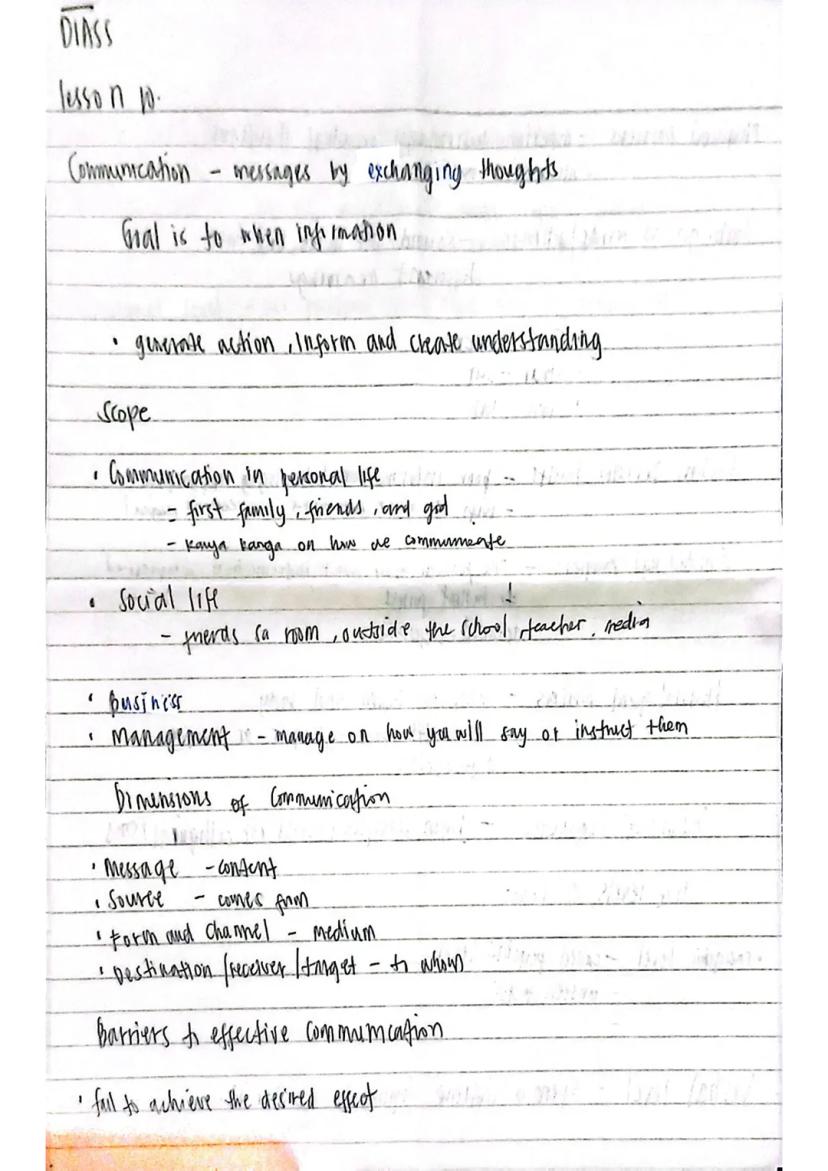 DIASS
lesson 10.
Communication - messages by exchanging thoughts
Goal is to when information
• generate action, Inform and create understanding
Scope
• Communication in personal life
- first family, friends, and god
- kanya kanya on how we communicate
• Social life
- friends sa room, outside the school, teacher, media
• Business
• Management - manage on how you will say or instruct them
Dimensions of Communication
• Message - content
• Source - comes from
• Form and Channel - medium
• Destination/receiver/target - to whom
Barriers to effective communication
• fail to achieve the desired effect